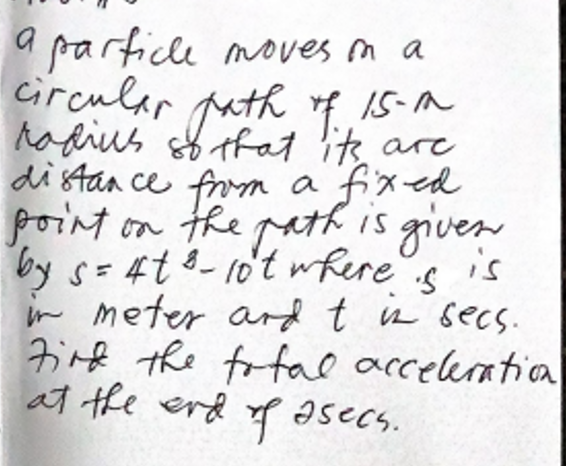 a particle moves on a
circular path of 15-m
radius so that its arc
distance from a fixed
point on the path is given
by s = 4t³ - 10t where s is
in meter and t in secs.
Find the total acceleration
at the end of 2secs.